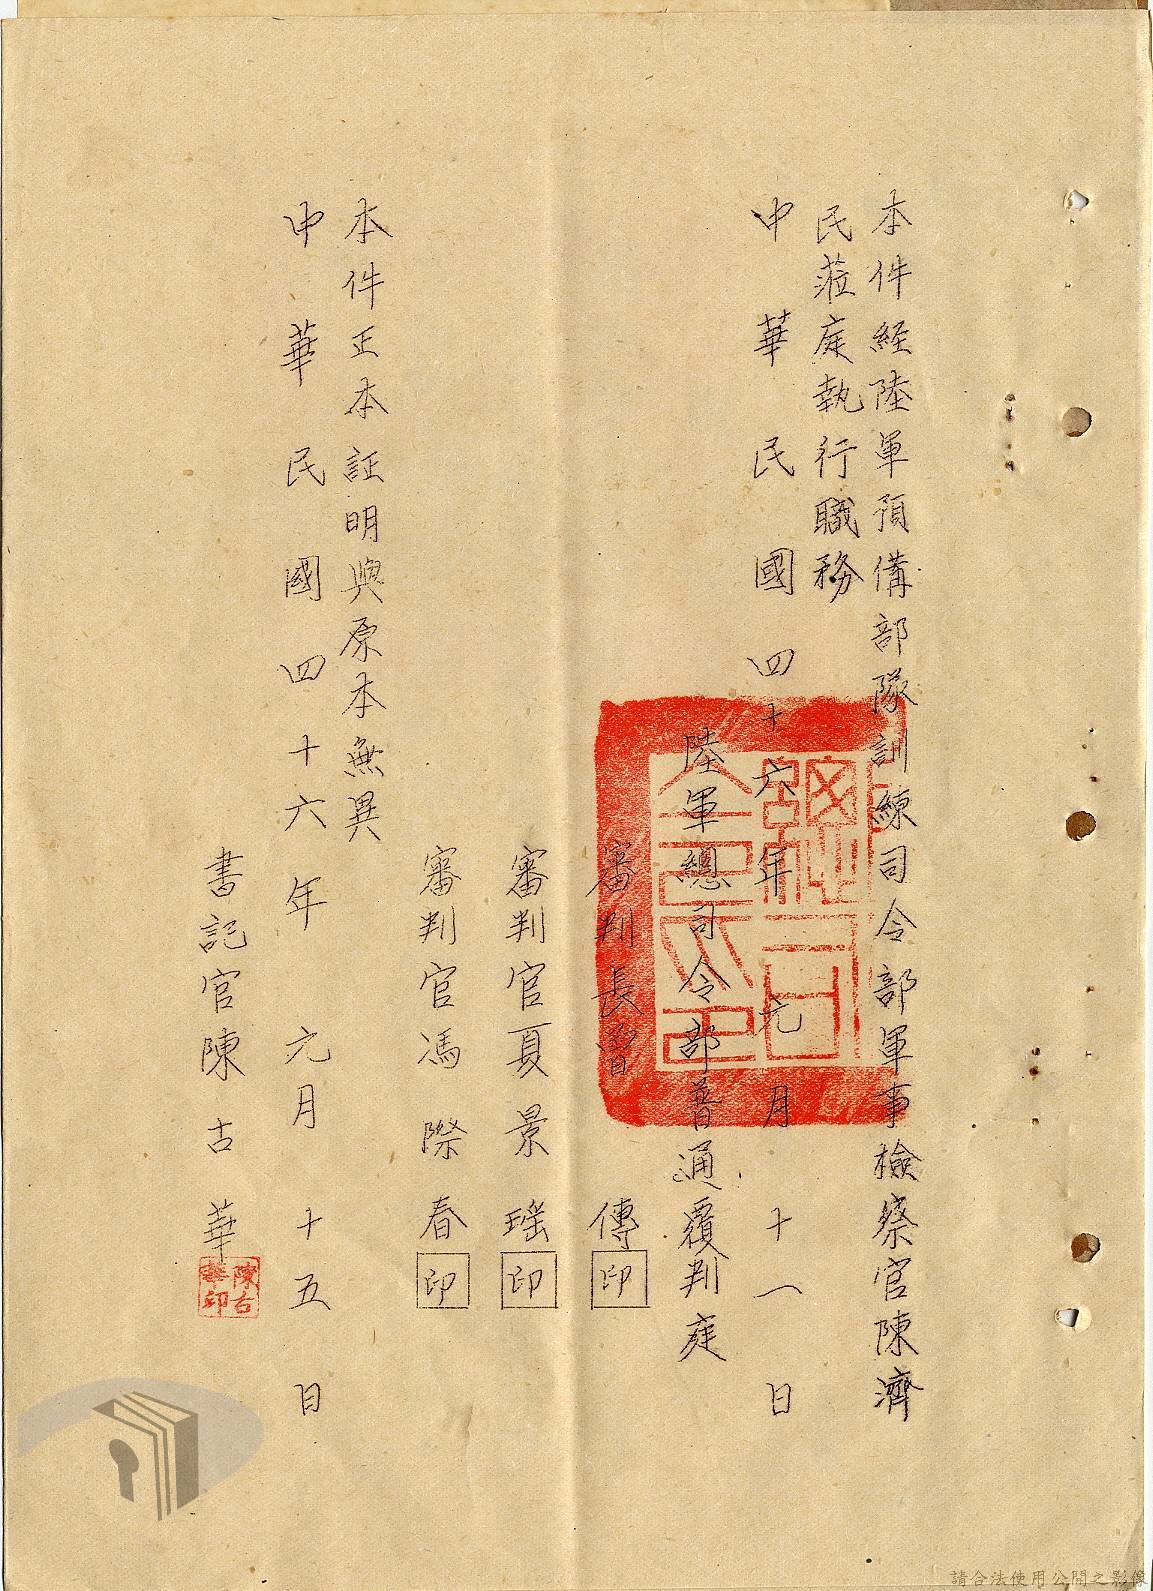 本件経陸軍預備部隊訓練司令部軍事檢察官陳濟
民蒞庭執行職務
中華民國四十六年元月十一日
陸軍總司令部普通覆判庭
審判長曾 傳印
審判官夏景瑶印
審判官馮際春印
本件正本証明與原本無異
中華民國四十六年元月十五日
書記官陳古華
陳古華印
請合法使用公開之影像